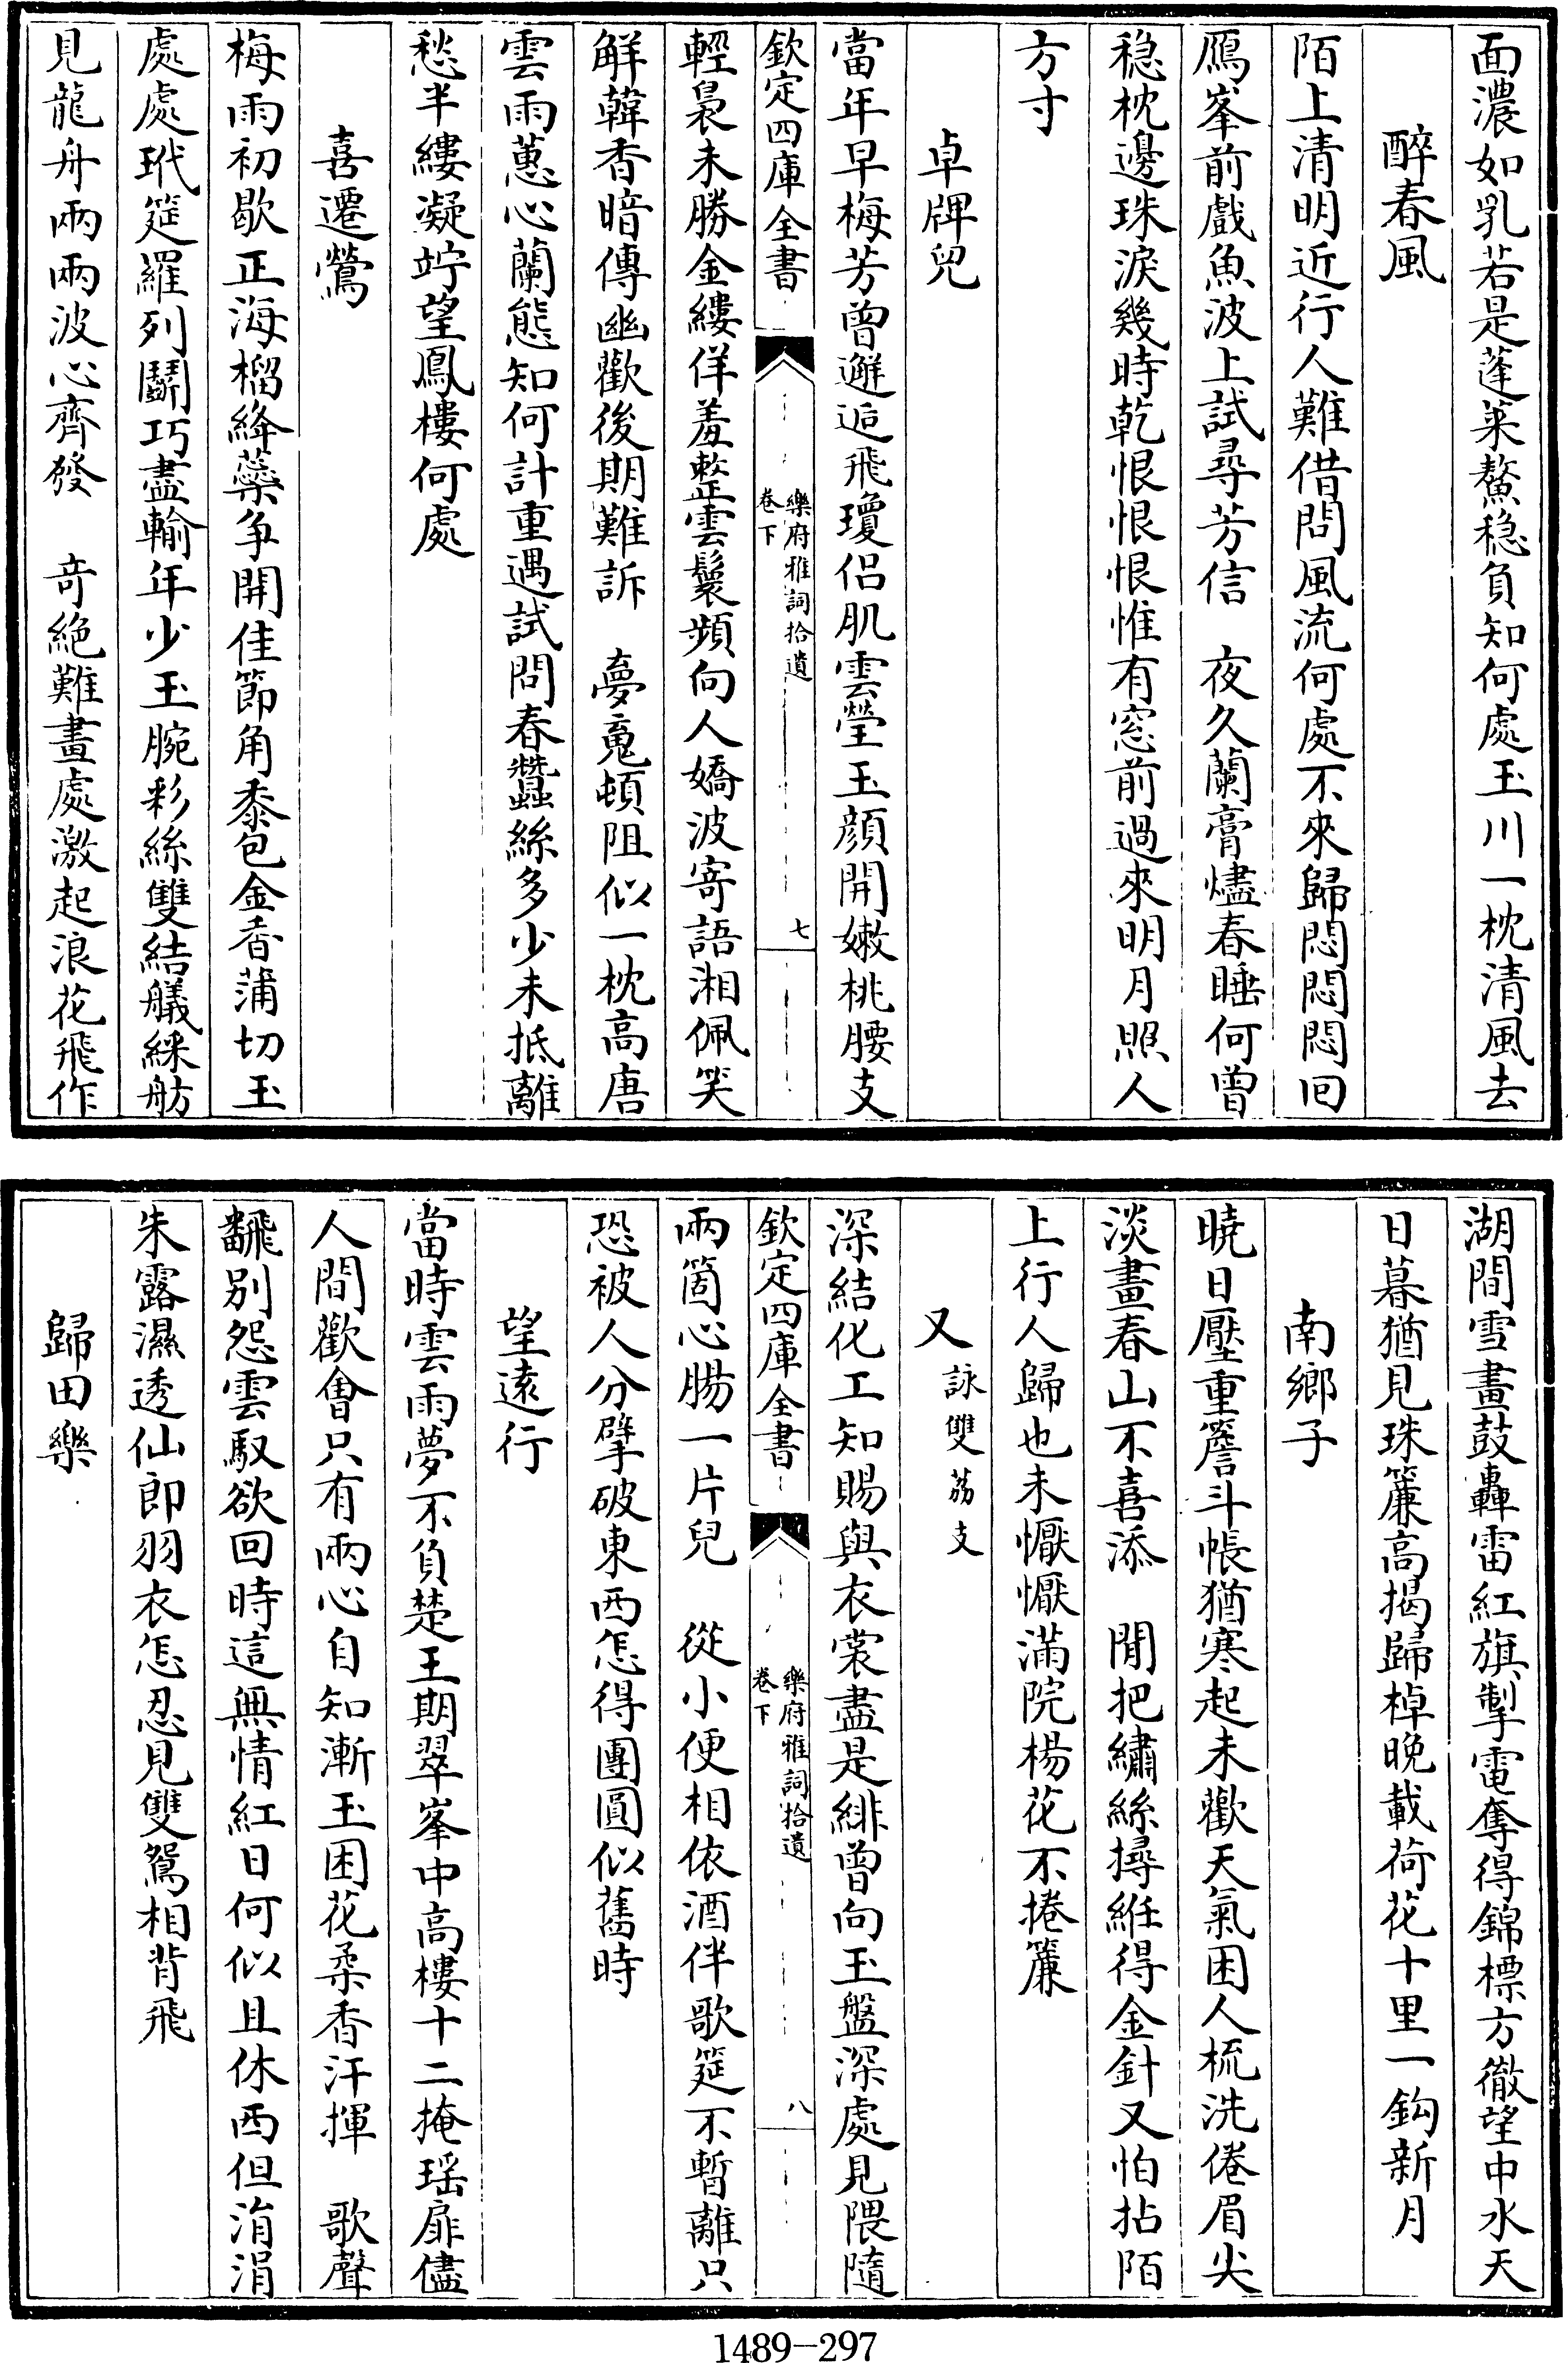 面濃如乳若是蓬萊鰲穏負知何處玉川一枕清風去
醉春風
陌上清明近行人難借問風流何處不來歸悶悶悶回
鴈峯前戲魚波上試尋芳信　夜久蘭膏燼春睡何曾
穏枕邊珠淚幾時乾恨恨恨惟有窓前過來明月照人
方寸
卓牌兒
當年早梅芳曾邂逅飛瓊侣肌雲瑩玉顔開嫩桃腰支
欽定四庫全書
樂府雅詞拾遺
卷下
七
輕裊未勝金縷佯羞整雲鬟頻向人嬌波寄語湘佩笑
解韓香暗傳幽歡後期難訴　夢竟頓阻似一枕高唐
雲雨蕙心蘭態知何計重遇試問春蠶絲多少未抵離
愁半縷凝竚望鳳樓何處
喜遷鶯
梅雨初歇正海榴絳蘂争開佳節角黍包金香蒲切玉
處處玳筵羅列鬭巧盡輸年少玉腕彩絲雙結艤綵舫
見龍舟兩兩波心齊發　竒絶難畫處激起浪花飛作
湖間雪畫鼓轟雷紅旗掣電奪得錦標方徹望中水天
日暮猶見珠簾高揭歸棹晚載荷花十里一鈎新月
南鄉子
曉日壓重簷斗帳猶寒起未歡天氣困人梳洗倦眉尖
淡畫春山不喜添　閒把繡絲撏絍得金針又怕拈陌
上行人歸也未懨懨滿院楊花不捲簾
又詠雙荔支
深結化工知賜與衣裳盡是緋曾向玉盤深處見隈隨
欽定四庫全書
樂府雅詞拾遺
卷下
八
兩箇心腸一片兒　從小便相依酒伴歌筵不暫離只
恐被人分擘破東西怎得團圓似舊時
望遠行
當時雲雨夢不負楚王期翠峯中高樓十二掩瑤扉儘
人間歡會只有兩心自知漸玉困花柔香汗揮　歌聲
飜别怨雲馭欲回時這無情紅日何似且休西但涓涓
朱露濕透仙郎羽衣怎忍見雙鴛相背飛
歸田樂
1489-297